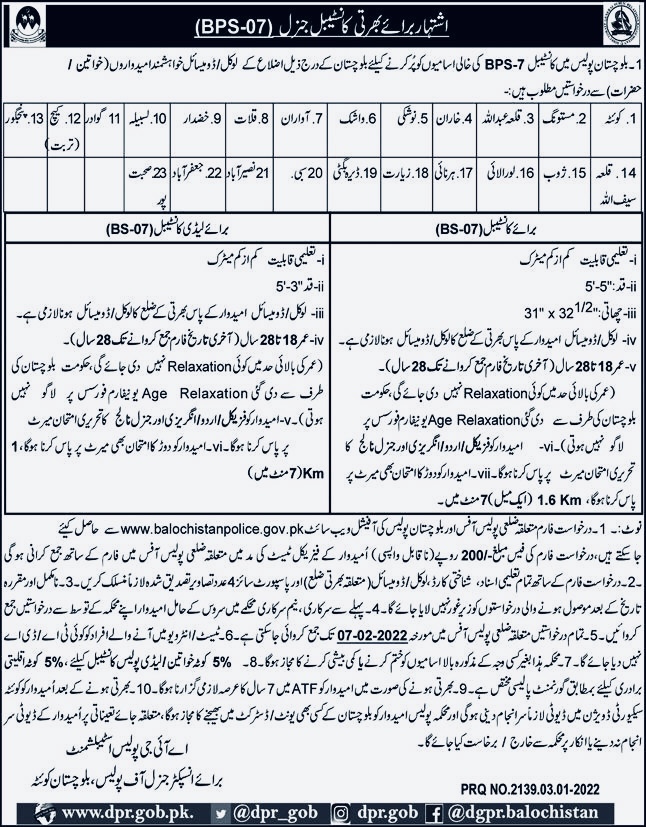 اشتہار برائے بھرتی کانسٹیبل جنرل (BPS-07)
1۔ بلوچستان پولیس میں کانسٹیبل BPS-7 کی خالی اسامیوں کو پُر کرنے کیلئے بلوچستان کے درج ذیل اضلاع کے لوکل/ڈومیسائل خواہشمند امیدواروں (خواتین /
حضرات) سے درخواستیں مطلوب ہیں:-
1. کوئٹہ 2. مستونگ 3. قلعہ عبداللہ 4. خاران 5. نوشکی 6. واشک 7. آواران 8. قلات 9. خضدار 10. لسبیلہ 11 گوادر 12. کیچ (تربت) 13. پنجگور
14. قلعہ سیف اللہ 15. ژوب 16. لورالائی 17. ہرنائی 18. زیارت 19. ڈیرہ بگٹی 20 سبی. 21 نصیر آباد 22. جعفر آباد 23 صحبت پور
برائے کانسٹیبل (BS-07)
i- تعلیمی قابلیت کم از کم میٹرک
ii- قد: "5-'5
iii- چھاتی: "31" x 32 1/2
iv- لوکل/ڈومیسائل امیدوار کے پاس بھرتی کے ضلع کا ہونا لازمی ہے۔
v- عمر 18 تا 28 سال (آخری تاریخ فارم جمع کروانے تک 28 سال)
(عمر کی بالائی حد میں کوئی Relaxation نہیں دی جائے گی، حکومت
بلوچستان کی طرف سے دی گئی Age Relaxation یونیفارم فورسس پر
لاگو نہیں ہوتی)۔ vi- امیدوار کو فزیکل/اردو/انگریزی اور جنرل نالج کا
تحریری امتحان میرٹ پر پاس کرنا ہوگا۔ vii- امیدوار کو دوڑ کا امتحان بھی میرٹ پر
پاس کرنا ہوگا، 1.6 Km (ایک میل) 7 منٹ میں۔
برائے لیڈی کانسٹیبل (BS-07)
i- تعلیمی قابلیت کم از کم میٹرک
ii- قد "3-'5
iii- لوکل/ڈومیسائل امیدوار کے پاس بھرتی کے ضلع کا لوکل/ڈومیسائل ہونا لازمی ہے۔
iv- عمر 18 تا 28 سال (آخری تاریخ فارم جمع کروانے تک 28 سال)
(عمر کی بالائی حد میں کوئی Relaxation نہیں دی جائے گی، حکومت بلوچستان کی
طرف سے دی گئی Age Relaxation یونیفارم فورسس پر لاگو نہیں
ہوتی)۔ v- امیدوار کو فزیکل/اردو/انگریزی اور جنرل نالج کا تحریری امتحان میرٹ
پر پاس کرنا ہوگا۔ vi- امیدوار کو دوڑ کا امتحان بھی میرٹ پر پاس کرنا ہوگا، 1
Km (7 منٹ میں)
نوٹ:- 1۔ درخواست فارم متعلقہ ضلعی پولیس آفس اور بلوچستان پولیس کی آفیشل ویب سائٹ www.balochistanpolice.gov.pk سے حاصل کیئے
جا سکتے ہیں، درخواست فارم کی فیس مبلغ -/200 روپے (ناقابل واپسی) اُمیدوار کے فیزیکل ٹیسٹ کی مد میں متعلقہ ضلعی پولیس آفس میں فارم کے ساتھ جمع کرانی ہوگی
2۔ درخواست فارم کے ساتھ تمام تعلیمی اسناد، شناختی کارڈ، لوکل/ڈومیسائل (متعلقہ بھرتی ضلع) اور پاسپورٹ سائز 4 عدد تصاویر تصدیق شدہ لازماً منسلک کریں۔ 3۔ نامکمل اور مقررہ
تاریخ کے بعد موصول ہونے والی درخواستوں کو زیرِ غور نہیں لایا جائے گا۔ 4۔ پہلے سے سرکاری، نیم سرکاری محکمے میں سروس کے حامل امیدوار اپنے محکمہ کے توسط سے درخواستیں جمع
کروائیں۔ 5۔ تمام درخواستیں متعلقہ ضلعی پولیس آفس میں مورخہ 07-02-2022 تک جمع کروائی جا سکتی ہے۔ 6۔ ٹیسٹ/انٹرویو میں آنے والے افراد کو کوئی ٹی اے/ڈی اے
نہیں دیا جائے گا۔ 7۔ محکمہ ہذا بغیر کسی وجہ کے مذکورہ بالا اسامیوں کو ختم کرنے یا کمی بیشی کرنے کا مجاز ہوگا۔ 8۔ 5% کوٹہ خواتین/لیڈی پولیس کانسٹیبل کیلئے، 5% کوٹہ اقلیتی
برادری کیلئے بمطابق گورنمنٹ پالیسی مختص ہے۔ 9۔ بھرتی ہونے کی صورت میں امیدوار کو ATF میں 7 سال کا عرصہ لازمی گزارنا ہوگا۔ 10۔ بھرتی ہونے کے بعد اُمیدوار کو کوئٹہ
سیکیورٹی ڈویژن میں ڈیوٹی لازماً سرانجام دینی ہوگی اور محکمہ پولیس امیدوار کو بلوچستان کے کسی بھی یونٹ/ڈسٹرکٹ میں بھیجنے کا مجاز ہوگا، متعلقہ جائے تعیناتی پر اُمیدوار کے ڈیوٹی سر
انجام نہ دینے یا انکار پر محکمہ سے خارج / برخاست کیا جائے گا۔
اے آئی جی پولیس اسٹیبلشمنٹ
برائے انسپکٹر جنرل آف پولیس، بلوچستان کوئٹہ
PRQ NO.2139.03.01-2022
www.dpr.gob.pk. @dpr_gob @dgpr.balochistan